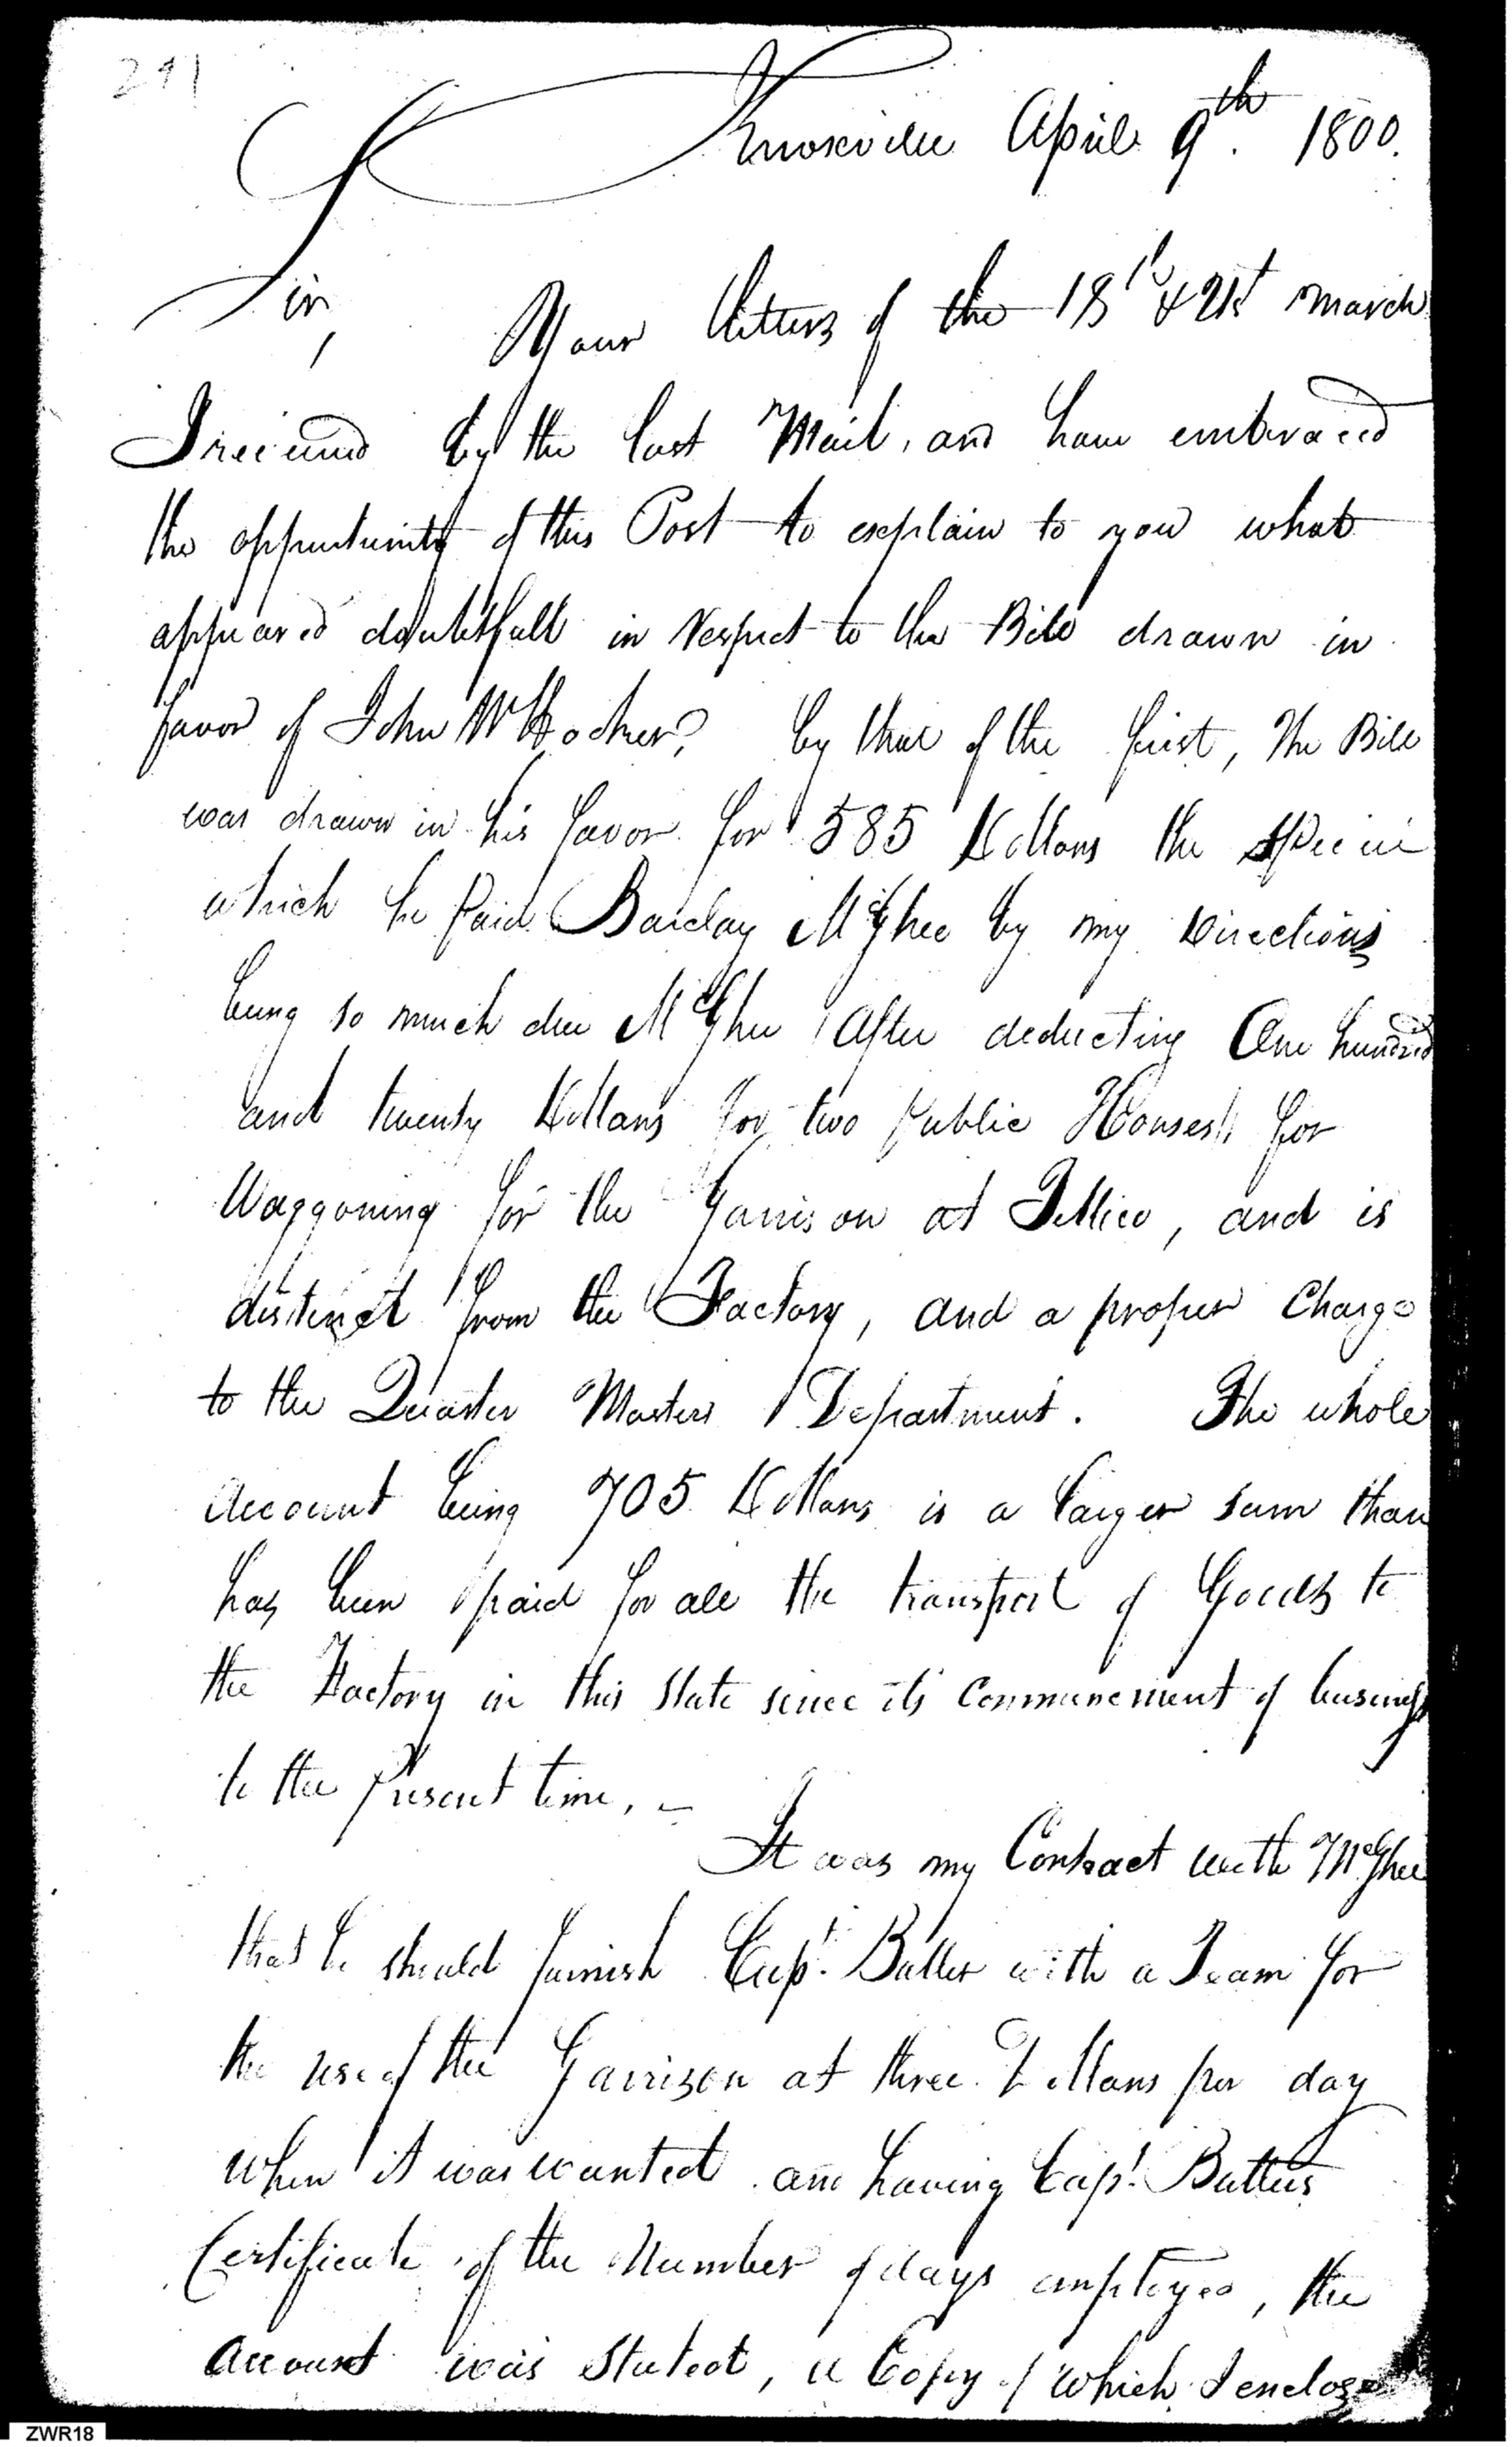 291
Knoxville April 9th. 1800.
Sir,
Your letters of the 18th & 21st March
I received by the last Mail, and have embraced
the oppertunity of this Post to explain to you what
appeared doubtfull in respect to the Bill drawn in
favor of John W Hooker? by that of the first, The Bill
was drawn in his favor for 585 Dollars the specie
which he Paid Barclay McGhee by my Directions
being so much due McGhee After deducting One hundred
and twenty Dollars for two Public Horses for
Waggoning for the Garrison at Tellico, and is
distinct from the Factory, and a proper Charge
to the Quarter Masters Department. The whole
Account being 705 Dollars is a larger sum than
has been paid for all the transport of Goods to
the Factory in this State since its Commencement of business
to the Present time, -
It was my Contract with McGhee
that he should furnish Capt. Butler with a Team for
the use of the Garrison at three Dollars per day
when it was wanted and having Capt. Butlers
Certificate of the Number of days employed, the
Account was Stated, a Copy of which I enclose
ZWR18